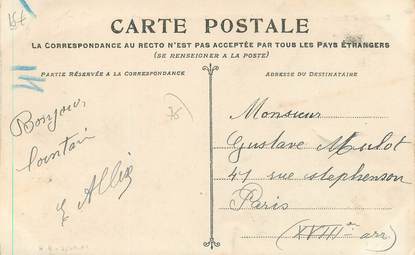 15+
CARTE POSTALE
LA CORRESPONDANCE AU RECTO N'EST PAS ACCEPTÉE PAR TOUS LES PAYS ÉTRANGERS
(SE RENSEIGNER A LA POSTE)
PARTIE RÉSERVÉE A LA CORRESPONDANCE
ADRESSE DU DESTINATAIRE
Bonjour
lointain
E Allix
75
Monsieur
Gustave Mulot
47 rue stephenson
Paris
(XVIIIe arr.)